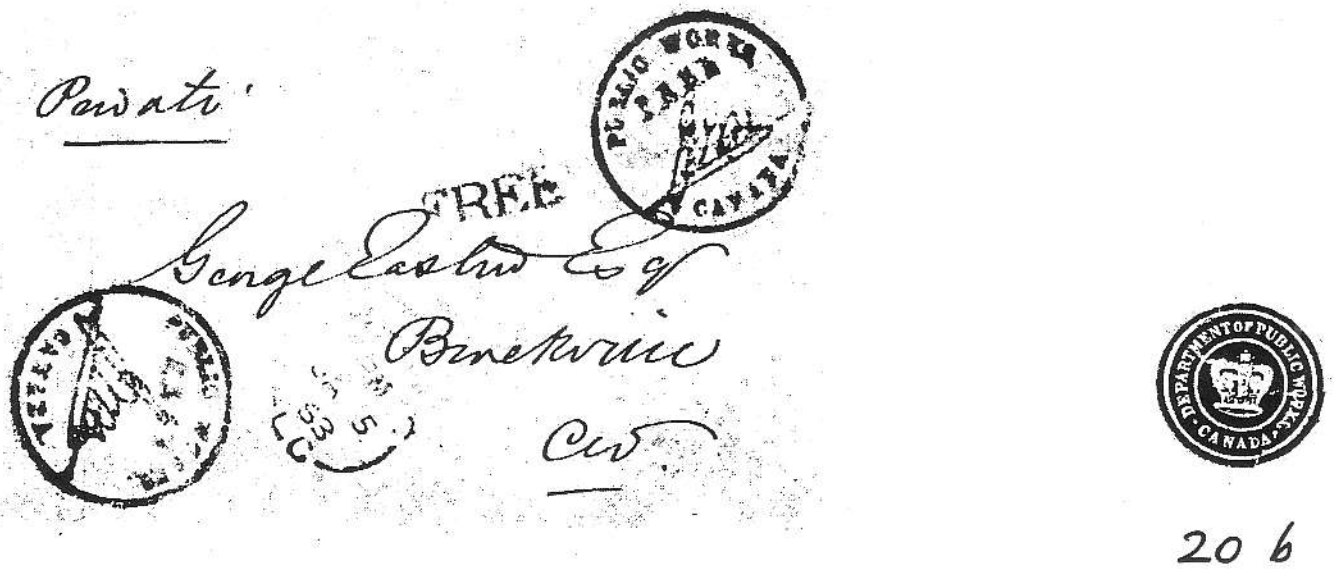 Private
PUBLIC WORKS
FREE
CANADA
FREE
George Easton Esq
Brockville
CW
PUBLIC WORKS
CANADA
5
63
L.C.
DEPARTMENT OF PUBLIC WORKS
CANADA
20 b